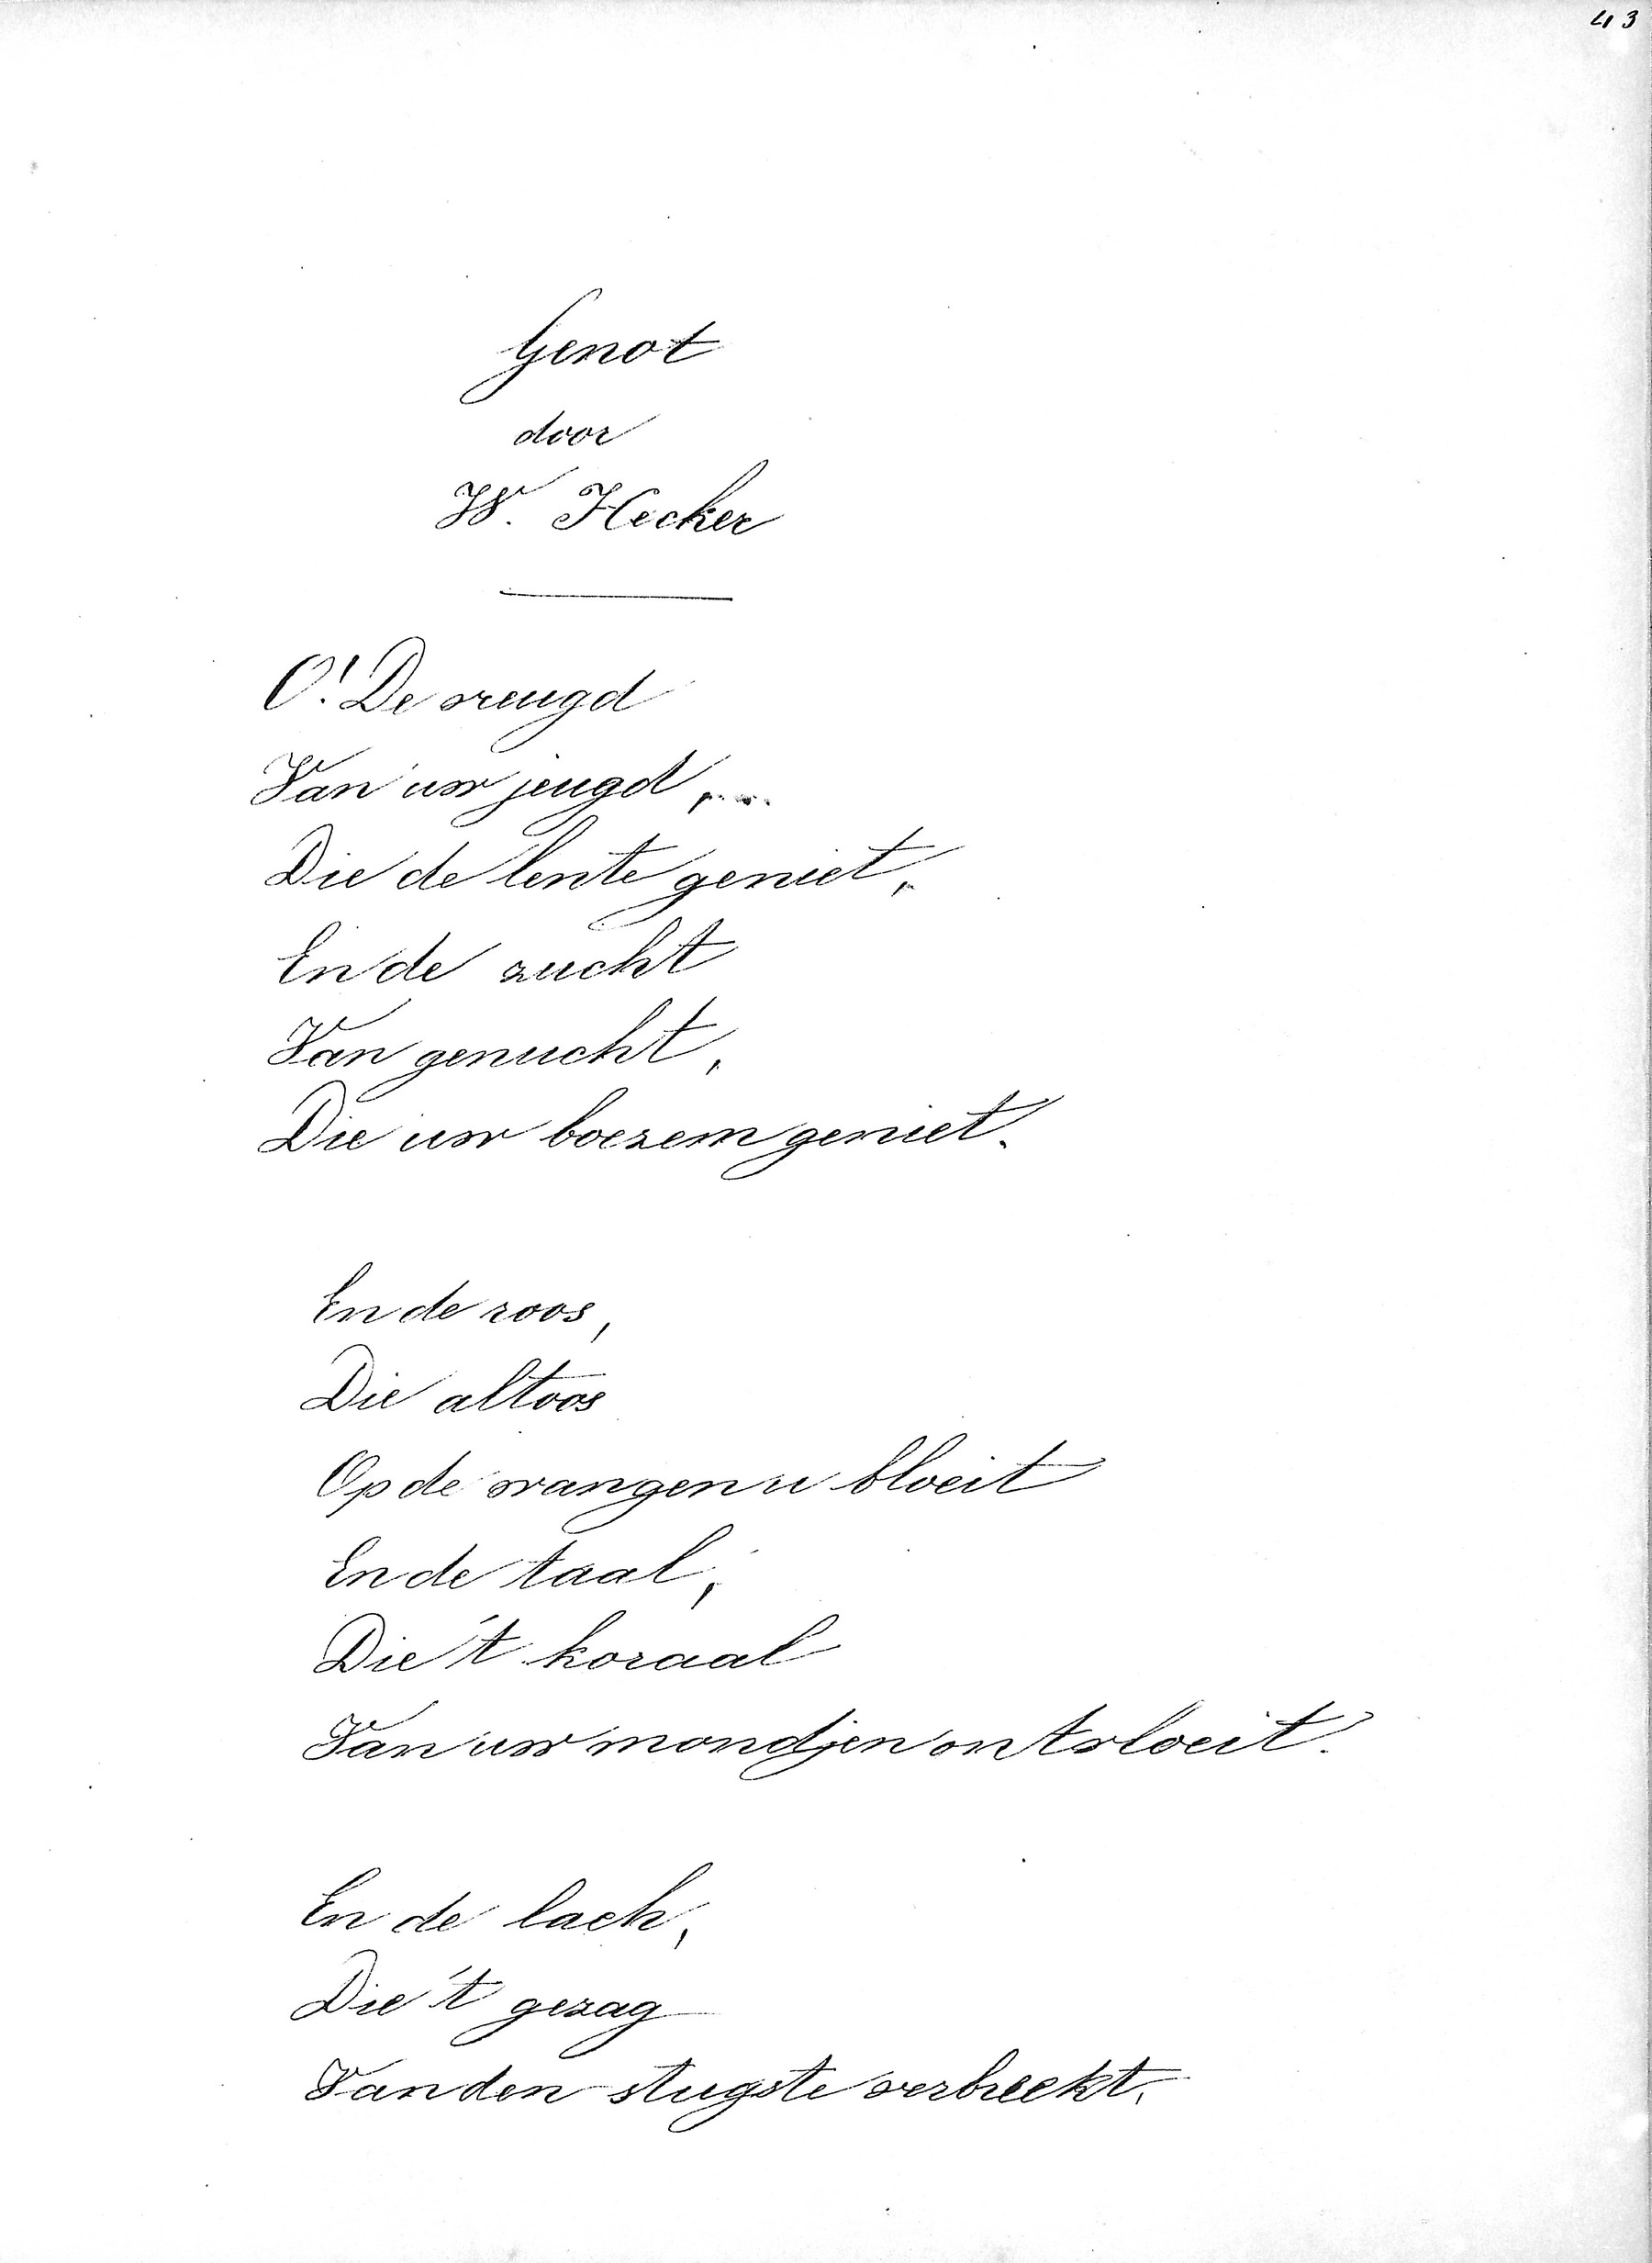 43
Genot
door
W. Hecker
O! De vreugd
Van uw jeugd,...
Die de lente geniet,
En de zucht
Van genucht,
Die uw boezem geniet.
En de roos,
Die altoos
Op de wangen u bloeit
En de taal,
Die 't koraal
Van uw mondjen ontvloeit.
En de lach,
Die 't gezag
Van den stugste verbreekt,